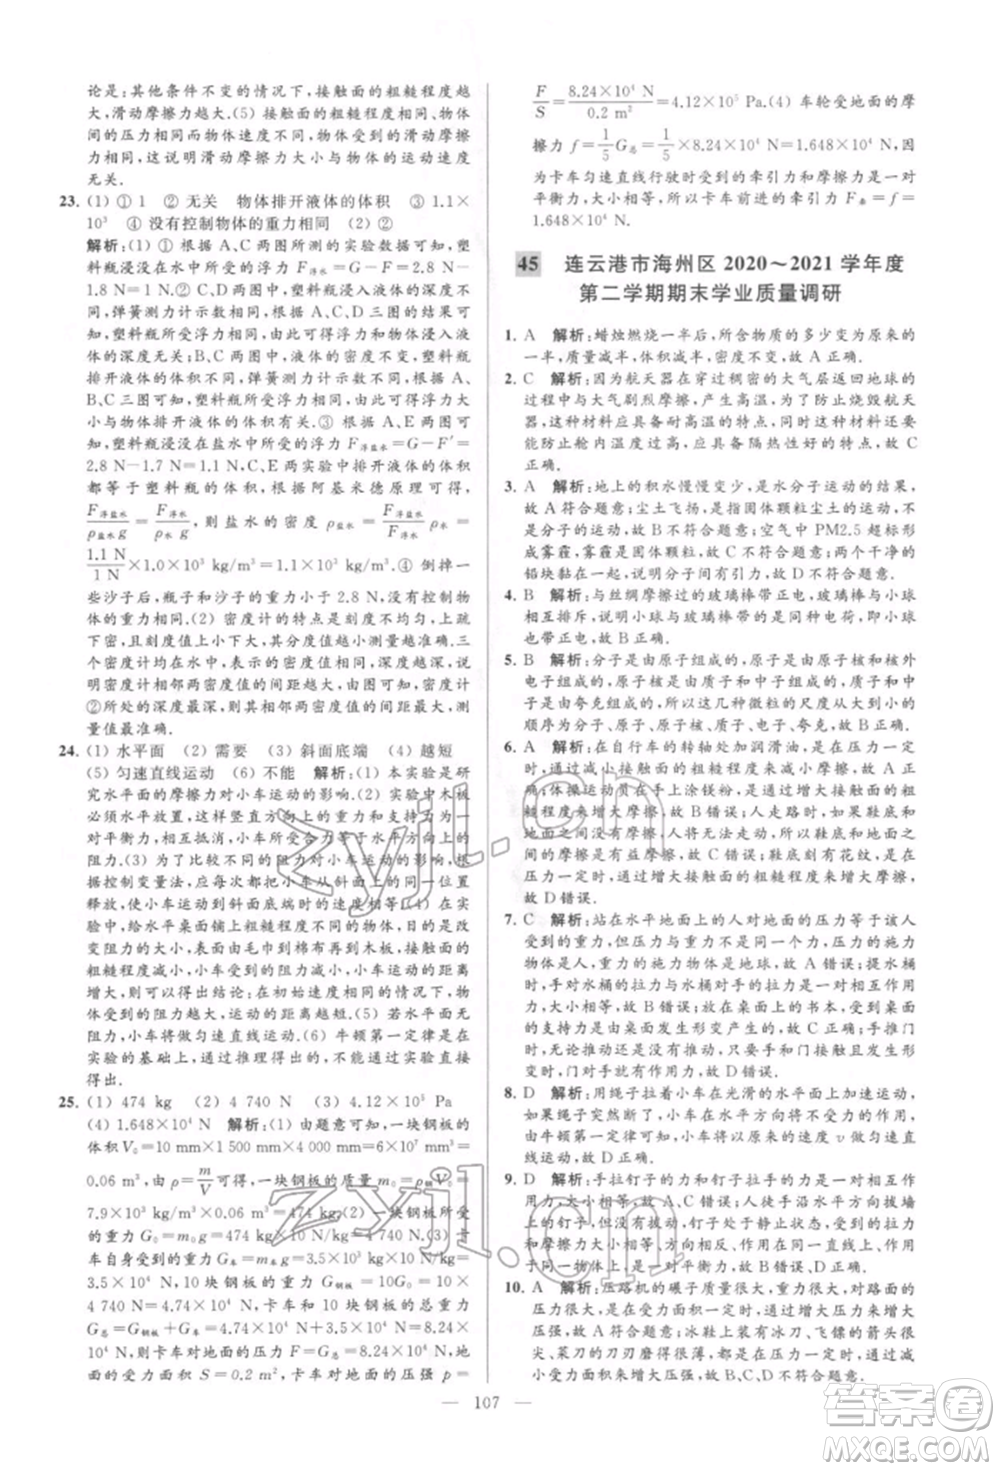 论是:其他条件不变的情况下,接触面的粗糙程度越
大,滑动摩擦力越大.(5) 接触面的粗糙程度相同、物体
间的压力相同而物体速度不同,物体受到的滑动摩擦
力相同,这说明滑动摩擦力大小与物体的运动速度
无关.
23. (1) ① 1 ② 无关 物体排开液体的体积 ③ 1.1×
10³ ④ 没有控制物体的重力相同 (2) ②
解析:(1) ① 根据 A、C 两图所测的实验数据可知,塑
料瓶浸没在水中受到的浮力 F浮水=G-F=2.8 N-
1.8 N=1 N.② 根据 A、C、D 三图可知,塑料瓶浸没后,
弹簧测力计示数不变,塑料瓶所受浮力不变,浮力与
深度无关;B、C 两图中,塑料瓶排开液体的体积不
同,弹簧测力计示数不同,塑料瓶所受浮力不同,根据
A、B、C 三图可知,塑料瓶所受浮力大小与物体排开
液体的体积有关,则可得出初步结论:物体所受浮力
大小与物体排开液体的体积有关.③ 根据 A、E 两图
可知,塑料瓶浸没在盐水中受到的浮力 F浮盐水=G-F'=
2.8 N-1.7 N=1.1 N,C、E 两实验中排开液体的体积
都等于塑料瓶的体积,根据阿基米德原理可得
F浮盐水/ρ盐水g=F浮水/ρ水g,则盐水的密度 ρ盐水=F浮盐水/F浮水 ρ水=
1.1 N/1 N×1.0×10³ kg/m³=1.1×10³ kg/m³.④ 倒掉一
些沙子后,瓶子和沙子的重力小于 2.8 N,没有控制物
体的重力相同.(2) 密度计的特点是刻度不均匀,上疏
下密,且刻度值上小下大,其分度值越小测量越准确.三
个密度计均在水中,示数一样,浸入的深度越深,说
明密度计相邻两密度值的间距越大,由图可知密度计
②所处的深度最深,其相邻两密度值的间距最大,测
量值最准确.
24. (1) 水平面 (2) 需要 (3) 斜面底端 (4) 越短
(5) 匀速直线运动 (6) 不能 解析:(1) 本实验是研
究水平面的摩擦力对小车运动的影响.(2) 实验中木板
必须水平放置,这样竖直方向上的重力和支持力是一
对平衡力,互相抵消,小车的运动只会受到水平方向上的
阻力.(3) 为了比较不同的阻力对小车运动的影响,根据
控制变量法,应每次都让小车从斜面上同一个位置
释放,使小车到达斜面底端时的初始速度相同.(4) 实验
中,给水平桌面铺上粗糙程度不同的物体,目的是改变
阻力的大小,桌面由毛巾到棉布再到木板,接触面的
粗糙程度减小,摩擦力减小,小车运动的距离变长,由
此可得出结论:在初始速度相同的情况下,小车受到的
阻力越大,运动的距离越短.(5) 若水平面无
阻力,小车将做匀速直线运动.(6) 牛顿第一定律是在
实验的基础上,通过推理得出的,不能用实验直接
得出.
25. (1) 474 kg (2) 4 740 N (3) 4.12×10⁵ Pa
(4) 1.648×10⁴ N 解析:(1) 由题意可知,一块钢板的
体积 V₀=10 mm×1 500 mm×4 000 mm=6×10⁷ mm³=
0.06 m³,由 ρ=m/V可得,一块钢板的质量 m₀=ρ钢V₀=
7.9×10³ kg/m³×0.06 m³=474 kg.(2) 一块钢板的重力
G₀=m₀g=474 kg×10 N/kg=4 740 N.(3) 卡
车自身受到的重力 G车=m车g=3.5×10³ kg×10 N/kg=
3.5×10⁴ N,10 块钢板的重力 G钢板=10G₀=10×
4 740 N=4.74×10⁴ N,卡车和 10 块钢板的总重力
G总=G钢板+G车=4.74×10⁴ N+3.5×10⁴ N=8.24×
10⁴ N,则卡车对地面的压力 F=G总=8.24×10⁴ N,与地
面的总受力面积 S=0.2 m²,卡车对地面的压强 p=
F/S=8.24×10⁴ N/0.2 m²=4.12×10⁵ Pa.(4) 车轮受地面的摩
擦力 f=1/5G总=1/5×8.24×10⁴ N=1.648×10⁴ N,
因为卡车匀速直线行驶时受到的牵引力和摩擦力是一对
平衡力,大小相等,所以卡车受到的牵引力 F牵=f=
1.648×10⁴ N.
45 连云港市海州区 2020~2021 学年度
第二学期期末学业质量调研
1. A 解析:蜡烛燃烧一半后,所含物质的多少变为原来的
一半,质量减半,密度不变,故 A 正确.
2. C 解析:因为航天器在穿过稠密的大气层返回地球的
过程中,与大气剧烈摩擦,产生高温,为了防止烧毁航天
器,这种材料应具备耐高温的特点,同时为了不影响航天
器内部,这种材料还应具备隔热性好的特点,故 C
正确.
3. A 解析:地上的积水慢慢变少,是水分子运动的结果,
故 A 符合题意;尘土飞扬,是固体颗粒尘土的运动,不是
分子的运动,故 B 不符合题意;空气中 PM2.5 超标形
成雾霾,雾霾是固体颗粒,故 C 不符合题意;两个
铅块黏在一起,说明分子间有引力,故 D 不符合题意.
4. B 解析:与丝绸摩擦过的玻璃棒带正电,玻璃棒与小球
相互排斥,说明小球与玻璃棒带的是同种电荷,即小球
一定带正电,故 B 正确.
5. B 解析:分子是由原子组成的,原子是由原子核和核外
电子组成的,原子核是由质子和中子组成的,质子和中
子是由夸克组成的,所以这几种微粒的尺度从大到小的
顺序为分子、原子、原子核、质子、电子、夸克,故 B 正确.
6. A 解析:在自行车的转轴处加润滑油,是在压力一定
时,通过减小接触面的粗糙程度来减小摩擦,故 A 正确;
体操运动员在手上涂镁粉,是在压力一定时,通过增大接
触面的粗糙程度来增大摩擦,故 B 错误;走路时,鞋底和
地面之间的摩擦是有益摩擦,故 C 错误;鞋底刻有花纹,是
在压力一定时,通过增大接触面的粗糙程度来增大摩擦,
故 D 错误.
7. C 解析:站在水平地面上的人对地面的压力等于该人
受到的重力,但压力并不是重力,压力的施力
物体是人,重力的施力物体是地球,故 A 错误;提水桶
时,手对水桶的拉力与水桶对手的拉力是一对相互作用
力,大小相等,故 B 错误;放在桌面上的书本,受到桌面
的支持力是由桌面发生形变产生的,故 C 正确;手推门
时,无论推动与否,只要手和门发生相互作用,手和门之
间就有力的作用,故 D 错误.
8. D 解析:用绳子拉着小车在光滑的水平面上运动的过
程中,如果绳子突然断了,小车在水平方向不受力的作用,
由牛顿第一定律可知,小车将以断时的速度 v 做匀速直
线运动,故 D 正确.
9. D 解析:手拉钉子的力和钉子对手的拉力是一对相互作
用力,大小相等,故 A、C 错误;人徒手沿水平方向拔墙
上的钉子,没有拔动,钉子处于静止状态,钉子受
力平衡,墙对钉子的摩擦力与手对钉子的拉力,大小相
等,方向相反,是一对平衡力,故 B 错误,D 正确.
10. A 解析:压路机的碾子质量很大,对路面的压力很大,
在受力面积一定时,通过增大压力来增大
压强,故 A 符合题意;冰鞋上装有冰刀、飞镖的箭头很
尖、菜刀的刀刃磨得很薄都是在压力一定时,通过减小受
力面积来增大压强,故 B、C、D 不符合题意.
107
zyjl.cn
zyjl.cn
答案圈
MXQE.COM